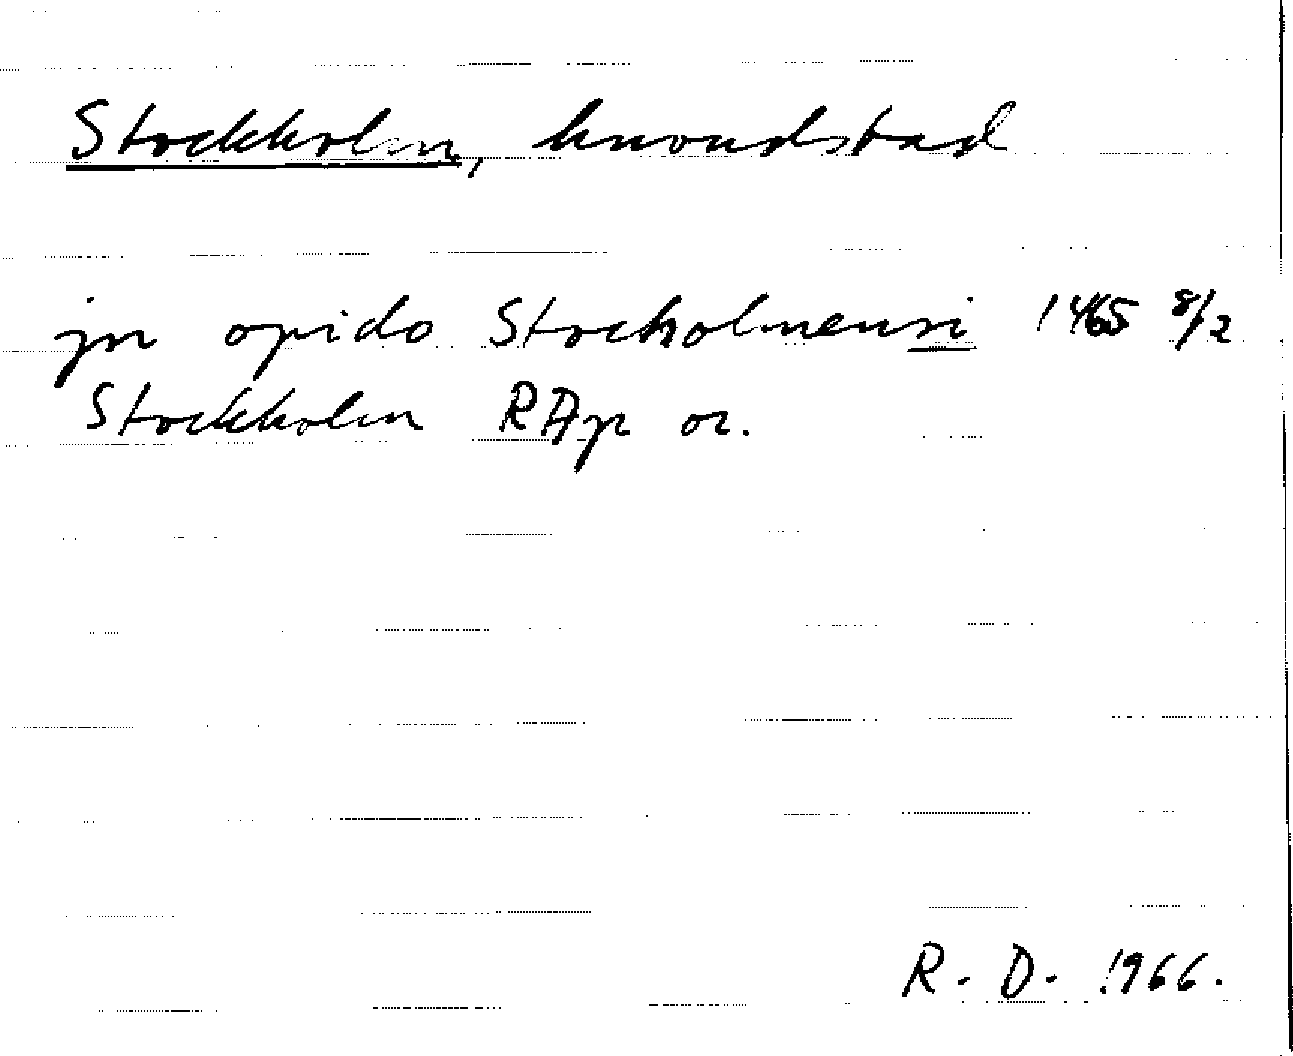 Stockholm, huvudstad
jn opido Stocholmensi 1465 8/2
Stockholm RAp or.
R. D. 1966.